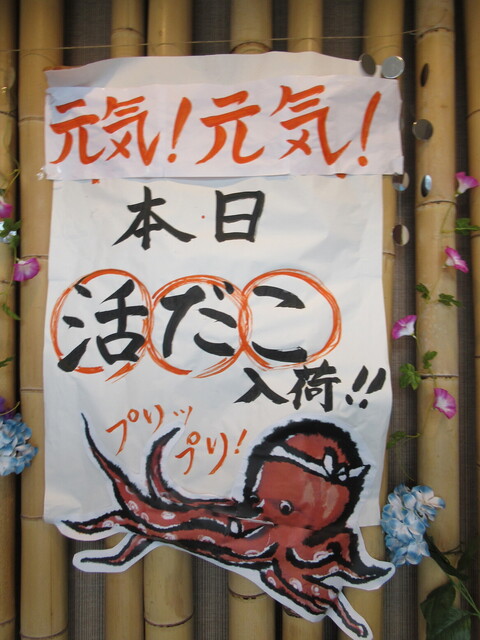 元気!元気!
本日
活だこ
入荷!!
プリッ
プリ!